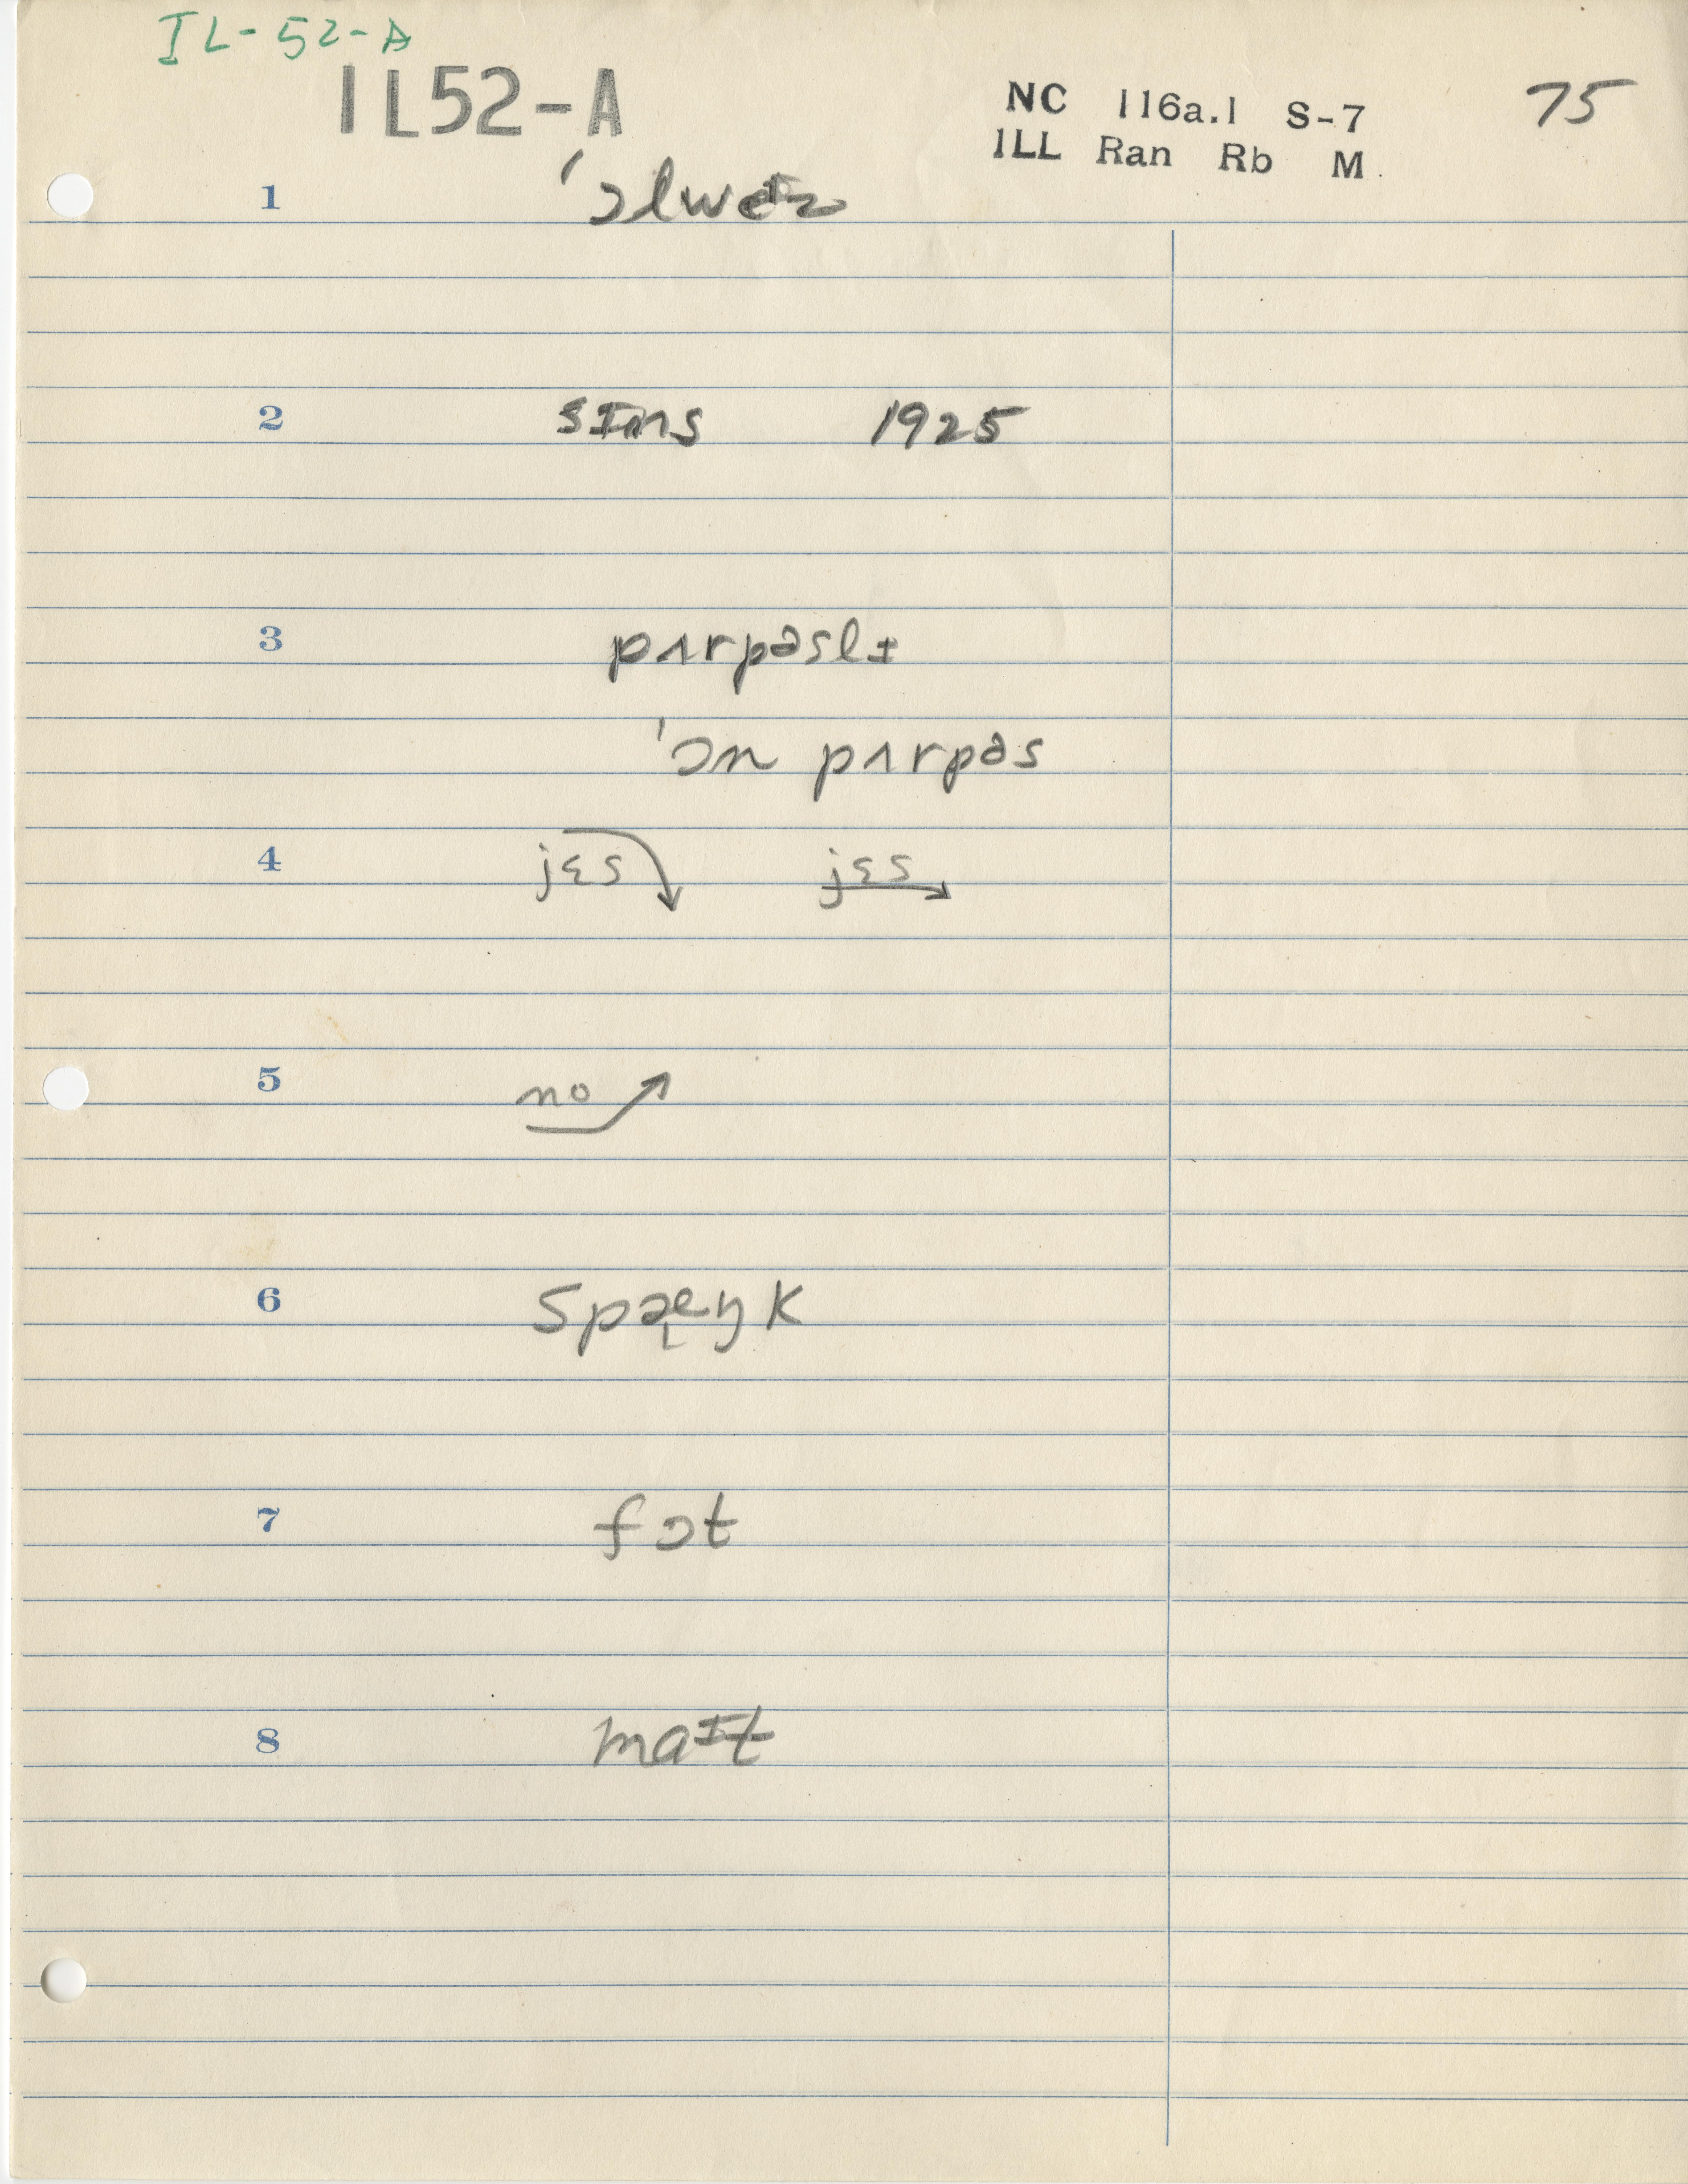 IL-52-A
IL52-A
NC 116a.1 S-7 75
ILL Ran Rb M
1 ˈɔlwez
2 sɪns 1925
3 pʌrpəslɪ
ˈɔn pʌrpəs
4 jɛs jɛs
5 no
6 spæŋk
7 fɔt
8 maɪt